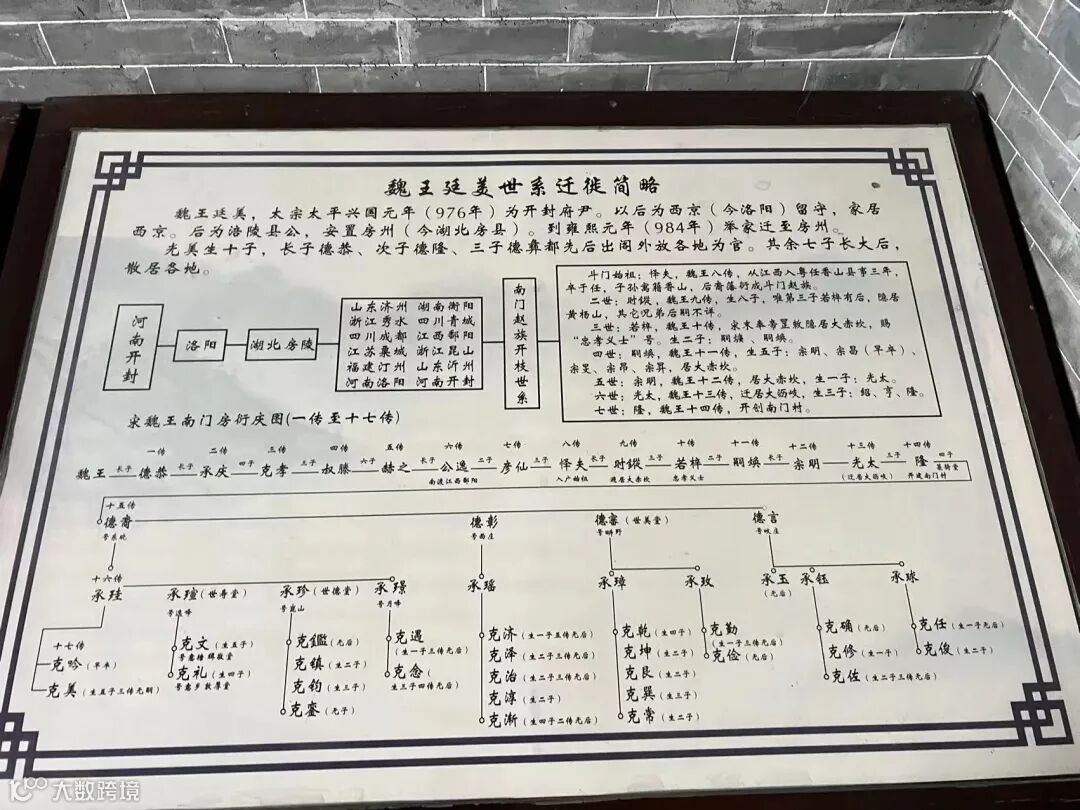 魏王廷美世系迁徙简略
魏王廷美，太宗太平兴国元年（976年）为开封府尹。以后为西京（今洛阳）留守，家居
西京。后为涪陵县公，安置房州（今湖北房县）。到雍熙元年（984年）举家迁至房州。
先美生十子，长子德恭、次子德隆、三子德彝都先后出阁外放各地为官。其余七子长大后，
散居各地。
河南开封
洛阳
湖北房陵
山东济州 湖南衡阳
浙江秀水 四川青城
四川成都 江西鄱阳
江苏虞城 浙江昆山
福建汀州 山东沂州
河南洛阳 河南开封
南门赵族开枝世系
斗门始祖：怿夫，魏王八传，从江西入粤任香山县事三年，
卒于任，子孙寓籍香山，后裔蕃衍成斗门赵族。
二世：时鏦，魏王九传，生八子，唯第三子若梓有后，隐居
黄杨山，其它兄弟后嗣不详。
三世：若梓，魏王十传，宋末奉旁置致隐居大赤坎，赐
“忠孝义士”号。生二子：嗣
四世：嗣焕，魏王十一传，生五子：宗明、宗昌（早卒）、
宗旻、宗昂、宗昇，居大赤坎。
五世：宗明，魏王十二传，居大赤坎，生一子：光太。
六世：光太，魏王十三传，迁居大沥岐，生三子：绍、亨、隆。
七世：隆，魏王十四传，开创南门村。
宋魏王南门房衍庆图(一传至十七传)
一传 二传 三传 四传 五传 六传 七传 八传 九传 十传 十一传 十二传 十三传 十四传
魏王 长子 德恭 长子 承庆 四子 克孝 三子 叔滕 六子 赫之 长子 公逸 二子 彦仙 三子 怿夫 长子 时鏦 三子 若梓 二子 嗣焕 长子 宗明 光太 三子 隆 四子
南渡江西鄱阳 入广始祖 避居大赤坎 忠孝义士 （迁居大沥岐） 开建南门村
十五传
德裔 德彰 德寀（世美堂） 德言
号西庄 号畊野 号岐庄
十六传
承珪 承瑄（世寿堂） 承珍（世德堂） 承璟 承瑶 承璋 承玫 承玉 承钰 承球
号崑山 号月峰 （无后）
十七传
克吟（早卒）
克美（生五子三传无嗣）
克文（生五子）
克礼（生四子）
克鑑（无后）
克镇（生二子）
克钧（生三子）
克銮（无子）
克遇
（生一子三传无后）
克念（
生三子四传无后）
克济（生一子五传无后）
克泽（生二子三传无后）
克治（生二子三传无后）
克淳（生二子）
克渐（生四子二传无后）
克乾（生四子）
克坤（生二子）
克艮（生二子）
克巽（生三子）
克常（生二子）
克勤
（生一子三传无后）
克俭（无后）
克确（无后）
克修（生一子）
克佐（生二子三传无后）
克任（生一子无后）
克俊（生二子）
大数跨境